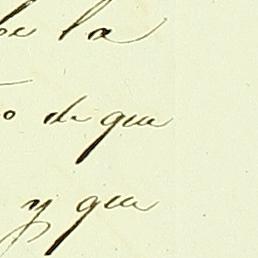 be la
o de que
y que